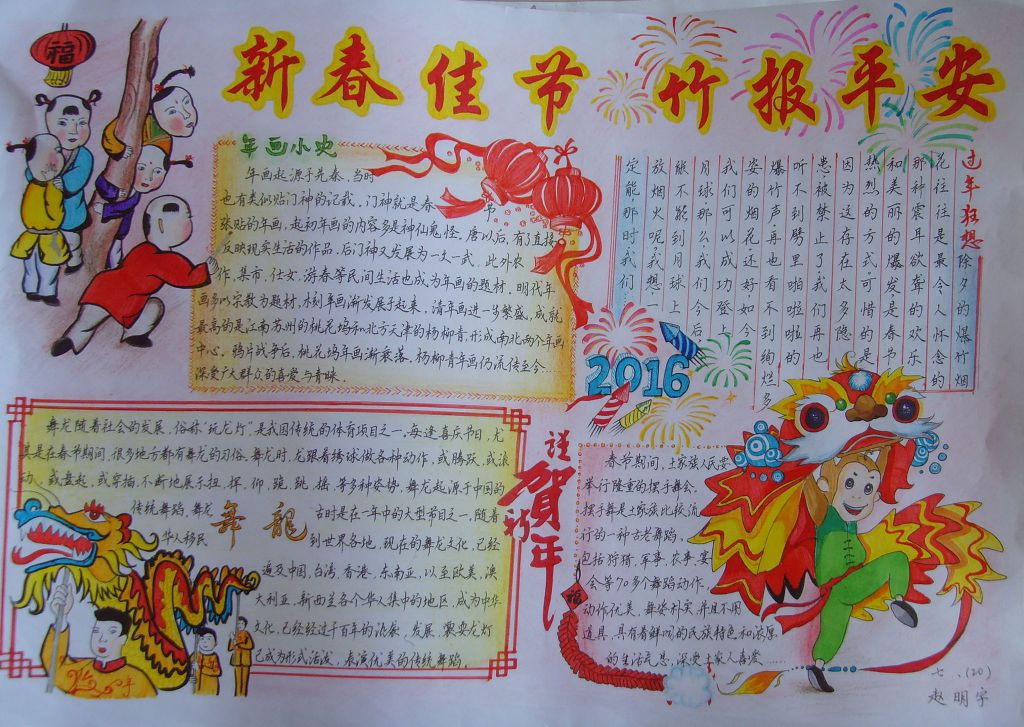 福
新春佳节 竹报平安
年画小史
年画起源于先秦,当时
也有类似贴门神的记载,门神就是春节
张贴的年画,起初年画的内容多是神仙鬼怪,唐以后,有了直接
反映现实生活的作品,后门神又发展为一文一武,此外农
作,集市,仕女,游春等民间生活也成为年画的题材,明代年
画多以宗教为题材,木刻年画渐发展于起来,清年画进一步繁盛,成就
最高的是江南苏州的桃花坞和北方天津的杨柳青,形成南北两个年画
中心。鸦片战争后,桃花坞年画渐衰落,杨柳青年画仍流传至今…
深受广大群众的喜爱与青睐.
过年狂想
除夕的爆竹烟
花往往是最令人怀念的
那种震耳欲聋的欢乐
和美丽的爆发是春节
热烈的方式可惜的是
因为这存在太多隐
患被禁止了我们再也
听不到劈里啪啦啦的
爆竹声再也看不到绚烂多
安的烟花还好,如今
我们可以成功登上
月球那么,我们今后
能不能到月球上
放烟火呢,我想,一
定能,那时我们
2016
舞龙随着社会的发展,俗称“玩龙灯”,是我国传统的体育项目之一。每逢喜庆节日,尤
其是在春节期间,很多地方都有舞龙的习俗。舞龙时,龙跟着绣球做各种动作,或腾跃,或滚
动,或盘起,或穿插,不断地展示扭,挥,仰,跪,跳,摇,等多种姿势,舞龙起源于中国的
传统舞蹈,舞龙
舞龍
古时是在一年中的大型节目之一,随着
华人移民
到世界各地,现在的舞龙文化,已经
遍及中国,台湾,香港,东南亚,以至欧美,澳
大利亚,新西兰各个华人集中的地区,成为中华
文化,已经经过千百年的流泰,发展,
龙灯
已成为形式活泼,表演优美的传统舞蹈。
谨
贺
新年
福
春节期间,土家族人民要
举行隆重的摆手舞会。
摆手舞是土家族比较流
行的一种古老舞蹈,
包括狩猎,军事,农事,宴
会等70多个舞蹈动作,
动作优美,舞姿朴实,并且不用
道具,具有着鲜明的民族特色和浓厚
的生活气息,深受土家人喜爱……
七.(20)
赵明宇